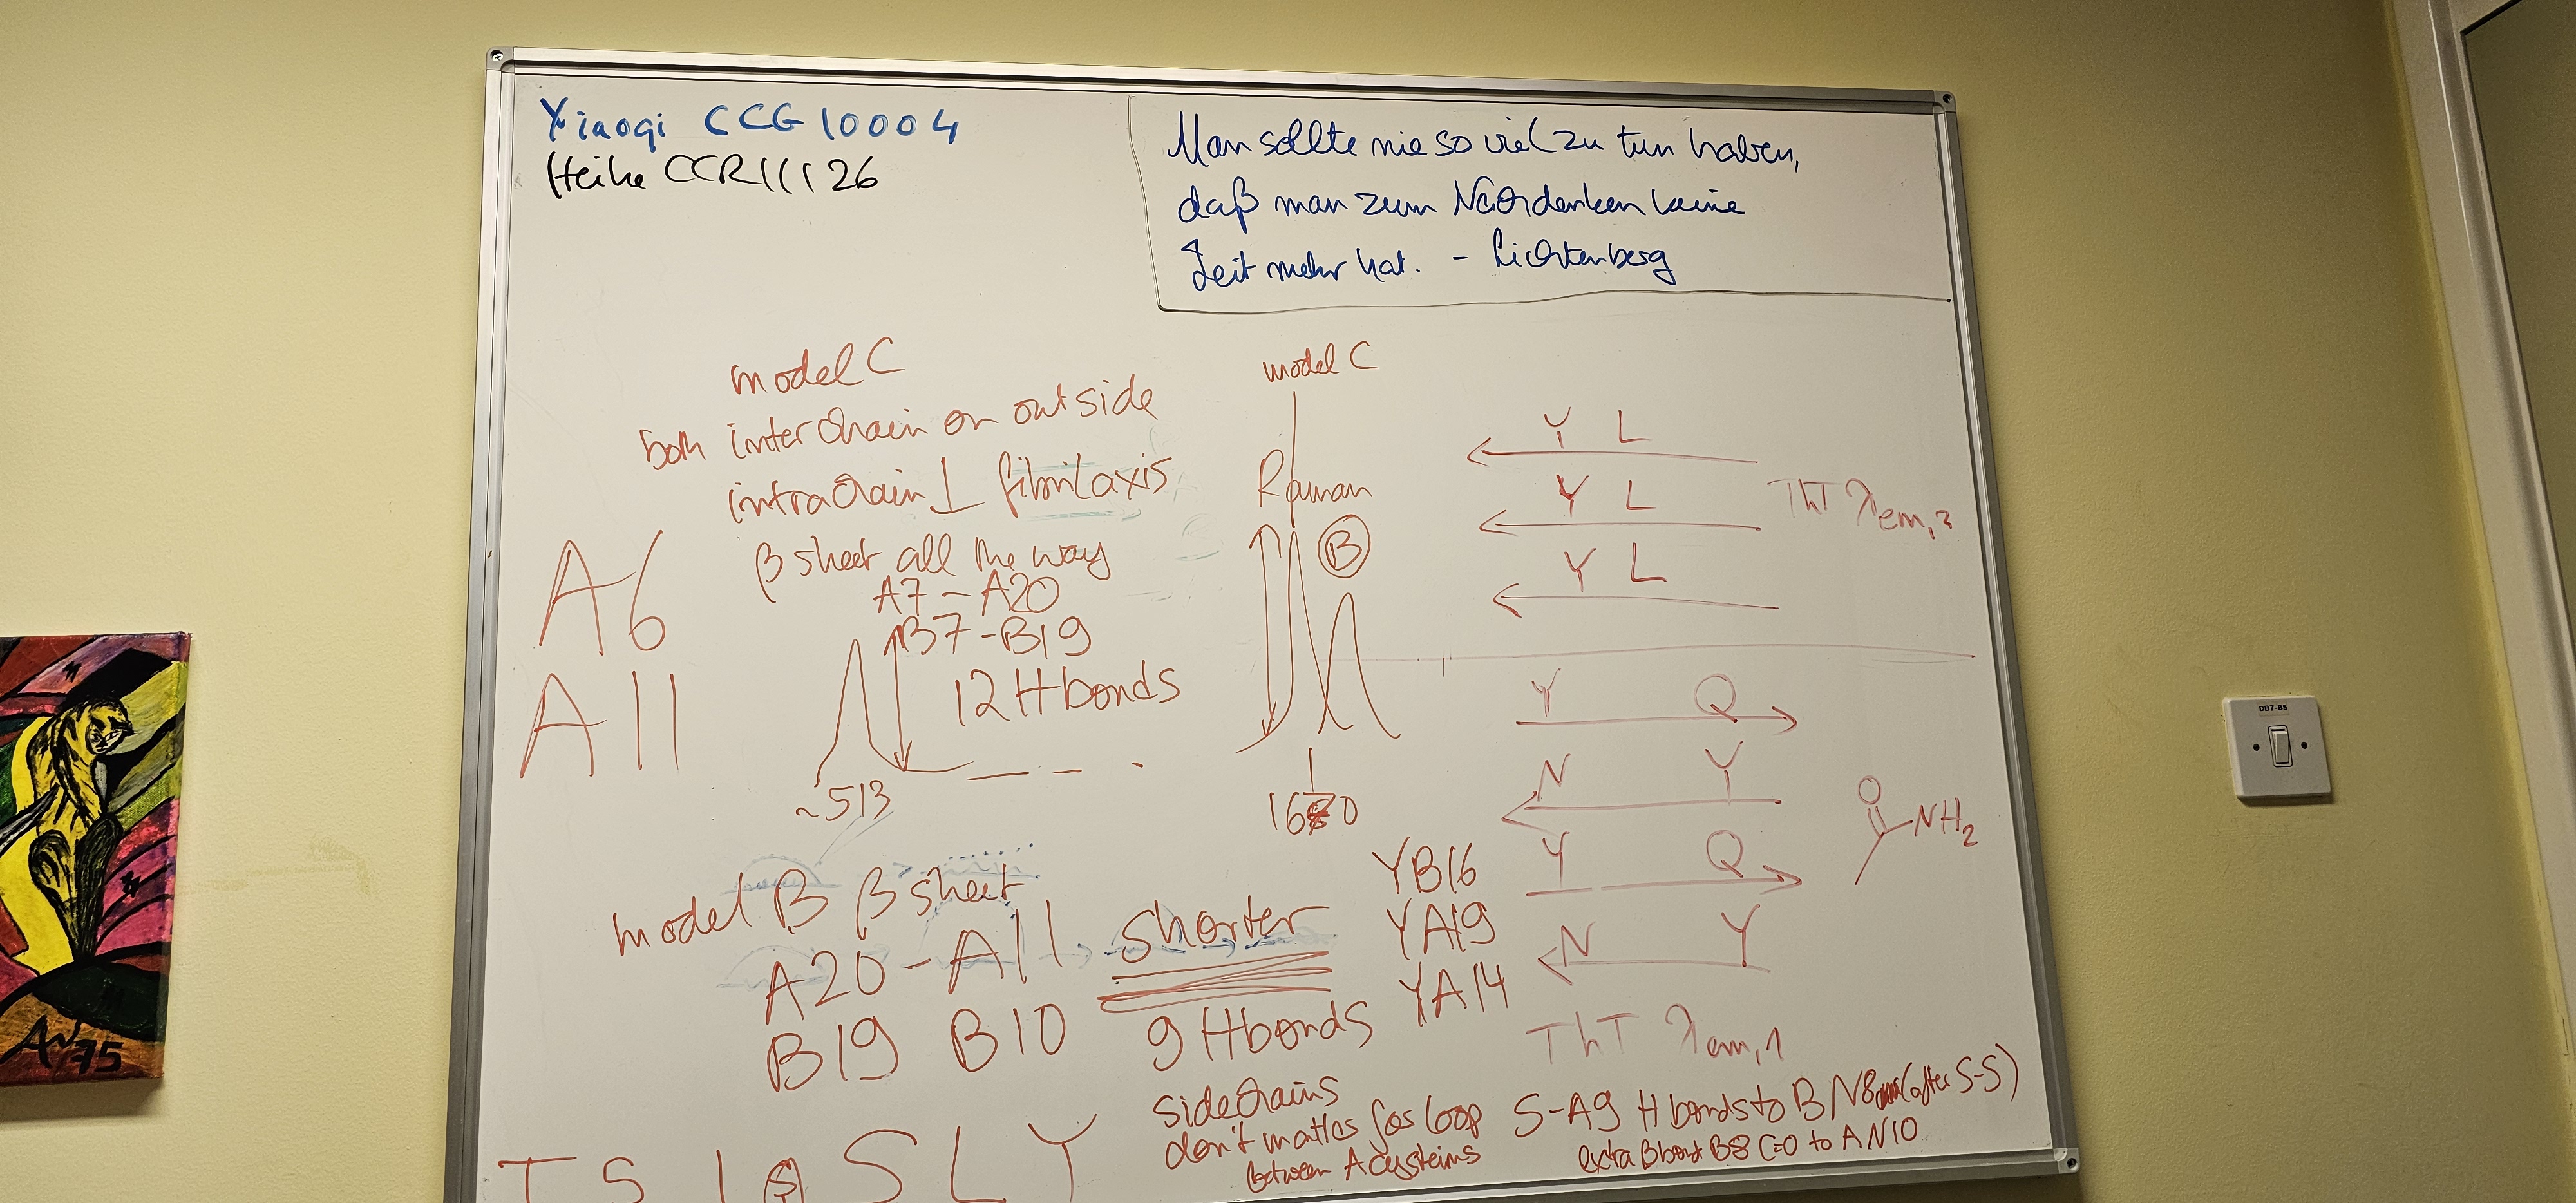 Xiaoqi CCG 10004
Heike CCR11126
Man sollte nie so viel zu tun haben,
daß man zum Nachdenken keine
Zeit mehr hat. - Lichtenberg
model C
both interchain on outside
intrachain ⊥ fibril axis
β sheet all the way
A7 - A20
B7 - B19
12 H bonds
A6
A11
~513
model C
Raman
B
1680
Y L
Y L
Y L
ThT λem,2
Y Q
N Y
Y Q
N Y
ThT λem,1
O
NH2
model B β sheet
A20 - A11 shorter
B19 B10 9 H bonds
YB16
YA19
YA14
sidechains
don't matter for loop
between A cysteins
S-A9 H bonds to B N8 (after S-S)
extra β bond B8 C=O to A N10
T S I S L Y
DB7-B5
AN 75